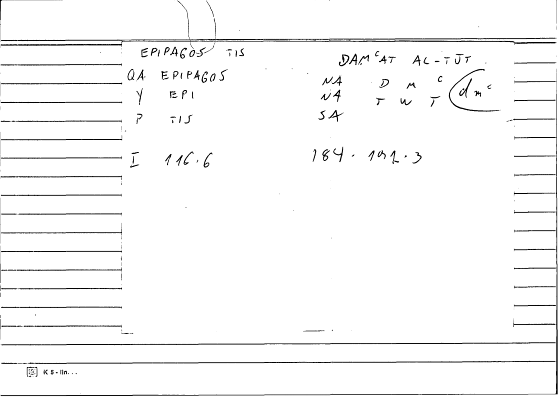 EPIPAGOS TIS DAMᶜAT AL-TJT
QA EPIPAGOS NA D M C
Y EPI NA T W T dmᶜ
P TIS SA
I 116.6 184.191.3
K 5-lin...